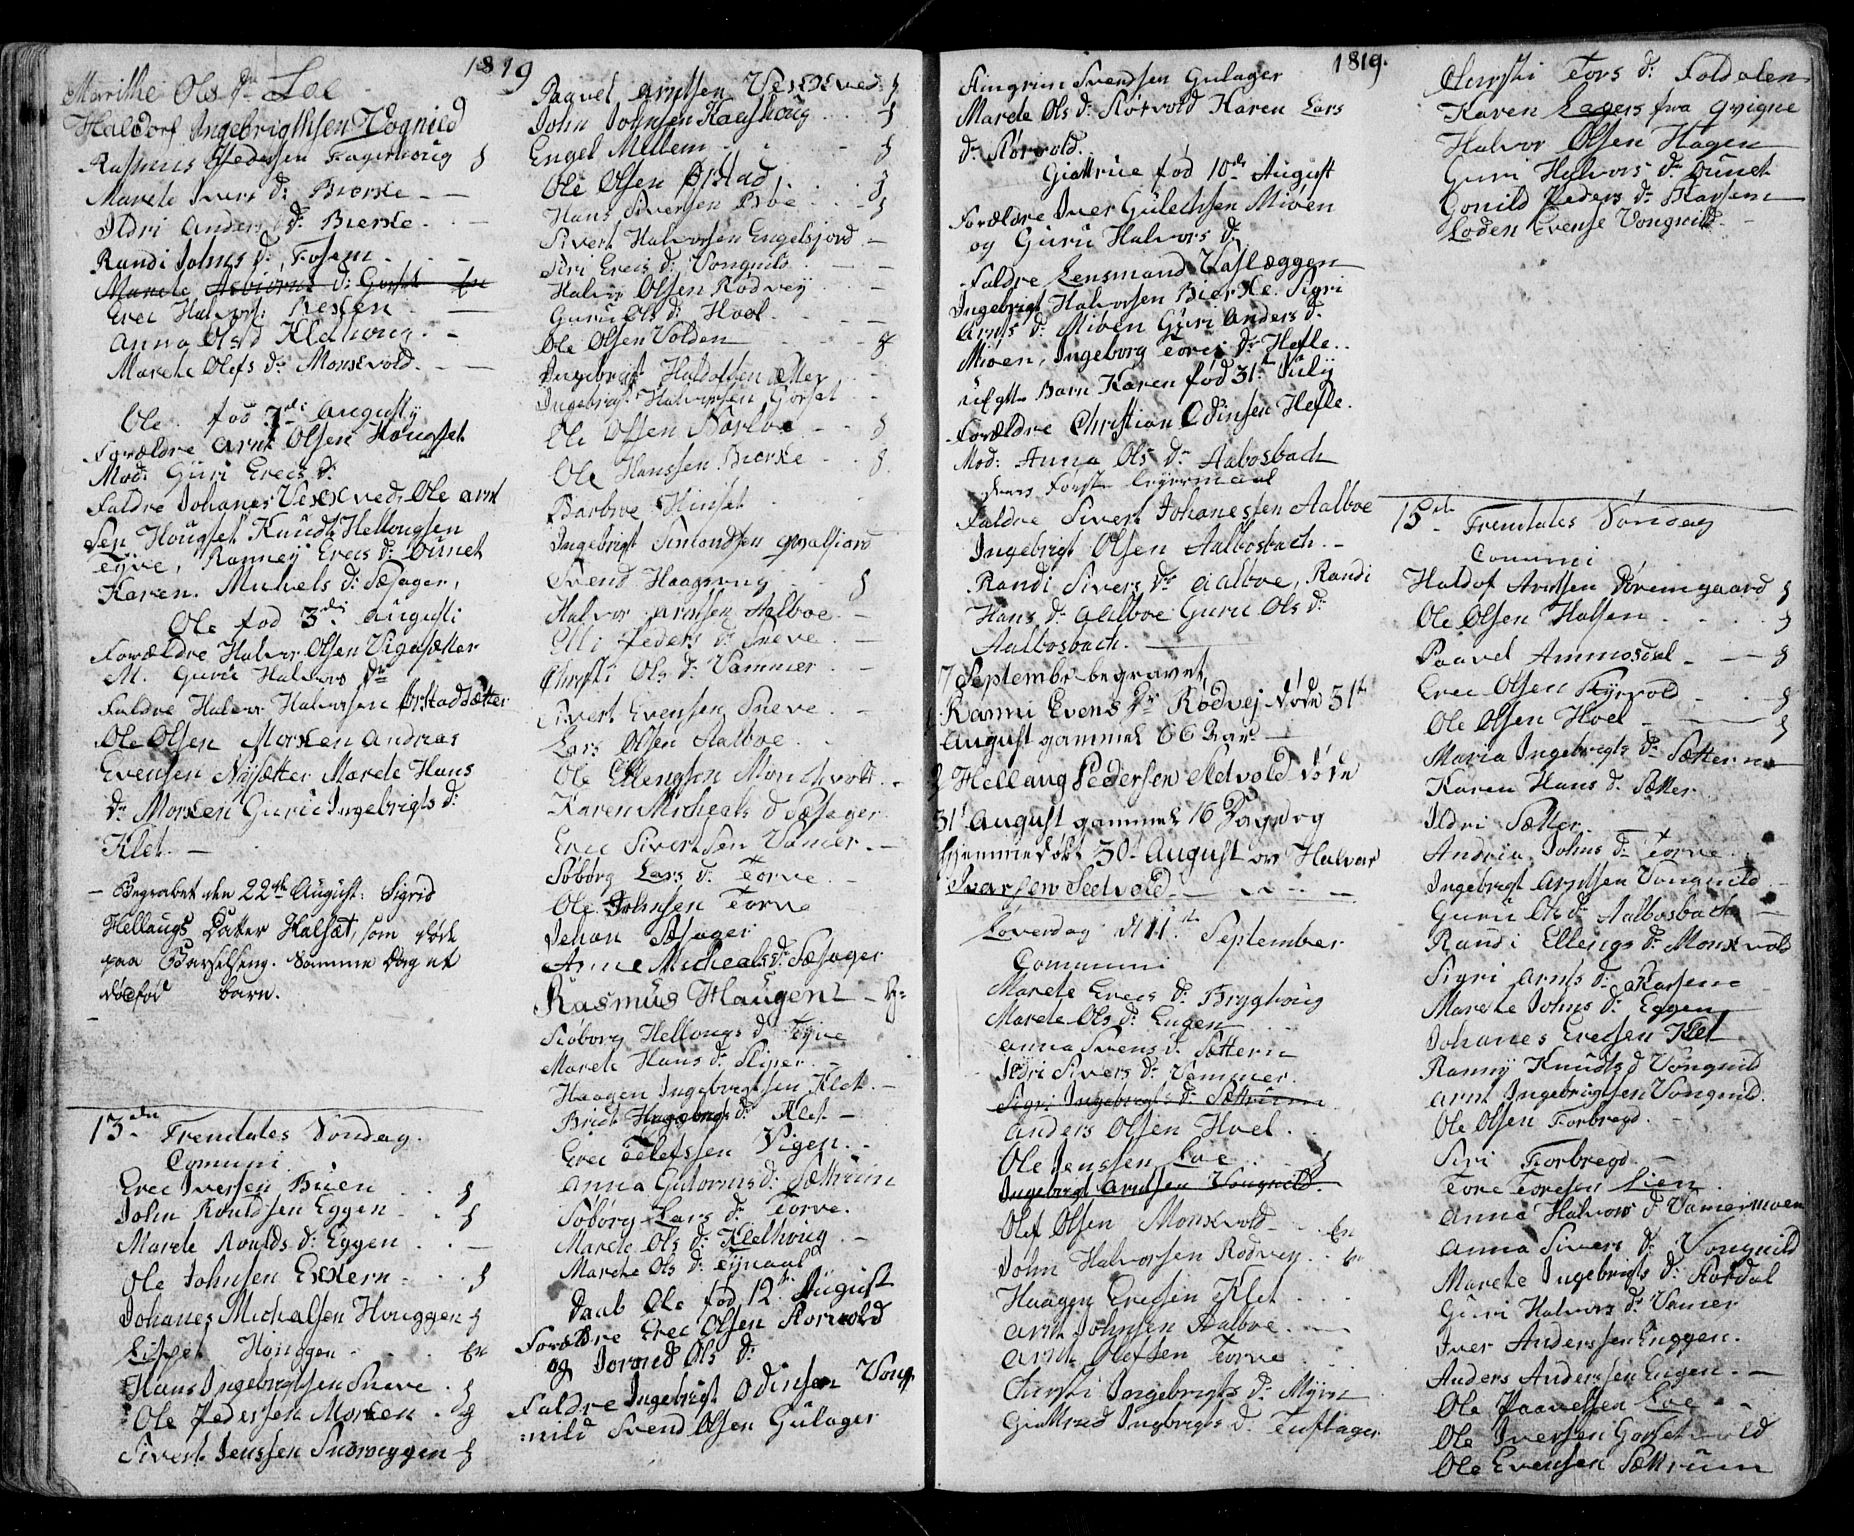 1819
Marithe Ols dr Loe
Haldorf Ingebrigthsen Vognild
Rasmus Pedersen Fagerhoug
Marete Ivers dr Bierke
Ildri Anders dr Bierke
Randi Johns dr Fosem
Marete Asbiorns dr Gorset
Erec Halvors: Rexen
Anna Ols d Klethoug
Marete Olefs dr Monsvold
Ole fød 7de Augusty
Forældre Arnt Olsen Hougset
Mod: Guri Erecs dr
Faldre Johanes Vexxved, Ole Arnt
sen Hougset Knudt Hellougsen
Tyve, Ranney Erecs dr Dunet
Karen Mickels dr Sæsager,
Ole fød 3di Augusti
Forældre Halvor Olsen Vigasætter
M. Guru Halvors dr
Faldre Halvor Halvorsen Ørstadsætter
Ole Olsen Morken Andreas
Evensen Nysætter Marete Hans
dr Morken Guru Ingebrigts dr
Klet.
Begravet den 22de August: Sigrid
Hellaugs Datter Halsæt, som døde
paa Barselseng. Samme Dag et
dødfød barn.
13de Trenitates Søndag.
Comuni
Erec Iversen Buen
John Roaldsen Eggen
Marete Roalds dr Eggen
Ole Johnsen Exxern
Johanes Michalsen Houggen
Lisbet Hougen
Hans Ingebrigtsen Sneve
Ole Pedersen Morken
Sivert Jenssen Snoeveggen
Paavel Arntsen Vexxved
John Johnsen Kaashoug
Engel Mellem
Ole Olsen Ørstad
Hans Siversen Bøe
Sivert Halvorsen Engelsjord
Siri Erecs dr Vongnild
Halvor Olsen Rødvey
Guru Ols dr Hoel
Ole Olsen Volden
Ingebrigt Haldorsen Sætter
Ingebrigt Halvorsen Gorset
Ole Olsen Norløe
Ole Hanssen Bierke
Barbroe Hinset
Ingebrigt Simondsen Qvalfiord
Svend Haagoung
Halvor Arntsen Aalboe
Elli Peders dr Sneve
Christi Ols dr Vammer
Sivert Evensen Sneve
Lars Olsen Aalboe
Ole Ellengsen Monsvold
Karen Micheals d Sæsager
Erec Sivertsen Vamer
Søborg Lars dr Torve
Ole Johnsen Torve
Johan Sæsager
Anne Micheals dr Sæsager
Rasmus Haugen
Søborg Hellougs d Tyve
Marete Hans dr Sliper
Haagen Ingebregtsen Klet
Brict Hagebrigts dr Klet
Erec Elefssen Vigen
Anna Gutorms dr Sættrum
Søborg Lars dr Torve.
Marete Ols dr Klethoug
Marete Ols dr Tynaal
Daab Ole fød 12te August
Forældre Erec Olsen Korsvold
og Jorand Ols dr
Faldre Ingebrigt Odinsen Vong
nild Svend Olsen Gulager
1819.
Hingrim Svendsen Gulager
Marete Ols dr Korsvold Karen Lars
dr Korsvold.
Giertrue fød 10de August
Forældre Iver Gulechsen Mioen
og Guru Halvors dr
Faldre Lensmand Vasleggen
Ingebrigt Halvorsen Bierke. Sigri
Arnts dr Mioen Guri Anders dr
Mioen, Ingeborg Tores dr Hefle.
uEgte Barn Karen fød 31te July
Forældre Christian Odinsen Hefle.
Mod: Anna Ols dr Aalbosbach
deres Første Leyermaal
Faldre Sivert Johanessen Aalboe
Ingebrigt Olsen Aalbosbach.
Randi Sivers dr Aalboe, Randi
Hans dr Aalboe Guru Ols dr
Aalbosbach.
7 September begravet
Ranni Evens Dr Rødvej døde 31te
August gammel 66 Aar
Hellaug Pedersen Setvold døde
31t August gammel 16 Dage og
hjemmedøbt 30t August av Halvor
Ivarsen Setvold
Løverdag d. 11te September
Communi
Marete Erecs dr Bryghoug
Marete Ols dr Engen
Anna Svens d. Sættern
Ildri Sivers dr Vammer.
Sigri Ingebrigts dr Sættrum
Anders Olsen Hoel.
Ole Jenssen Loe
Ingebrigt Arntsen Vongnild.
Olef Olsen Monsvold
John Halvorsen Rødvey
Haagen Erecsen Klet
Arnt Johnsen Aalboe
Arnt Olefsen Torve
Christi Ingebrigts dr Myren
Giertrud Ingebrigts d. Tuftager
Christi Tors dr Foldalen
Karen Lagers fra Qvigne
Halvor Olsen Hagen
Guri Halvors dr Dunet
Gonild Peders dr Karsem
Loden Evense Vongnild
15de Trenitates Søndag
Comuni
Haldof Arntsen Dørumgaard
Ole Olsen Halsen
Paavel Ammosdal
Erec Olsen Kyrvold
Ole Olsen Hoel
Maria Ingebrigts dr Sættern
Karen Hans d. Sætter
Ildri Sætter
Andria Johns dr Torve
Ingebrigt Arntsen Vongnild
Guru Ols dr Aalbosbach
Randi Ellengs dr Monsvold
Sigri Arnts dr Karsem
Marete Johns dr Eggen
Johanes Erecsen Klet
Ranny Knudts d Vongnild
Arnt Ingebrigtsen Vongnild.
Ole Olsen Forbregd
Siri Forbregd
Tore Toresen Lien
Anna Halvors d Vamermoen
Anna Sivers dr Vongnild
Marete Ingebrigts dr Stordal
Guri Halvors dr Vamer
Iver Anderssen Enggen.
Anders Anderssen Engen.
Ole Paavelsen Loe
Ole Iversen Gorsetvold
Ole Evensen Sættrum